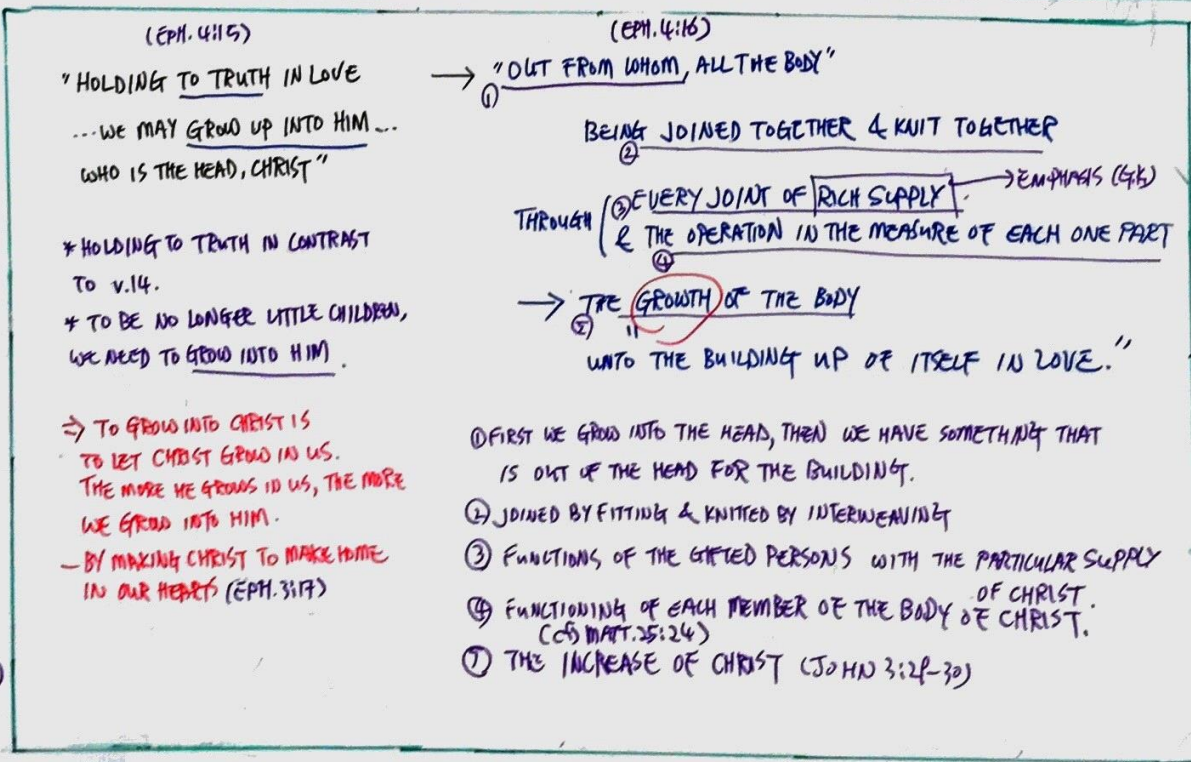 (EPH. 4:15)
"HOLDING TO TRUTH IN LOVE
...WE MAY GROW UP INTO HIM...
WHO IS THE HEAD, CHRIST"
* HOLDING TO TRUTH IN CONTRAST
TO v.14.
* TO BE NO LONGER LITTLE CHILDREN,
WE NEED TO GROW INTO HIM.
⇒ TO GROW INTO CHRIST IS
TO LET CHRIST GROW IN US.
THE MORE HE GROWS IN US, THE MORE
WE GROW INTO HIM.
- BY MAKING CHRIST TO MAKE HOME
IN OUR HEARTS (EPH. 3:17)
(EPH. 4:16)
→ "OUT FROM WHOM, ALL THE BODY"
①
BEING JOINED TOGETHER & KNIT TOGETHER
②
THROUGH ③ EVERY JOINT OF RICH SUPPLY. → EMPHASIS (GK)
& THE OPERATION IN THE MEASURE OF EACH ONE PART
④
→ THE GROWTH OF THE BODY
⑤
UNTO THE BUILDING UP OF ITSELF IN LOVE."
① FIRST WE GROW INTO THE HEAD, THEN WE HAVE SOMETHING THAT
IS OUT OF THE HEAD FOR THE BUILDING.
② JOINED BY FITTING & KNITTED BY INTERWEAVING
③ FUNCTIONS OF THE GIFTED PERSONS WITH THE PARTICULAR SUPPLY
OF CHRIST.
④ FUNCTIONING OF EACH MEMBER OF THE BODY OF CHRIST.
(cf) MATT. 25:24)
⑤ THE INCREASE OF CHRIST (JOHN 3:29-30)